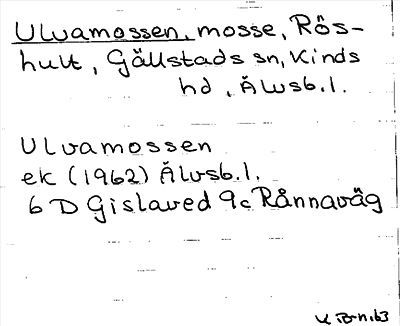 Ulvamossen, mosse, Rös-
hult, Gällstads sn, Kinds
hd, Älvsb. l.
Ulvamossen
ek (1962) Älvsb. l.
6 D Gislaved 9c Rånnaväg